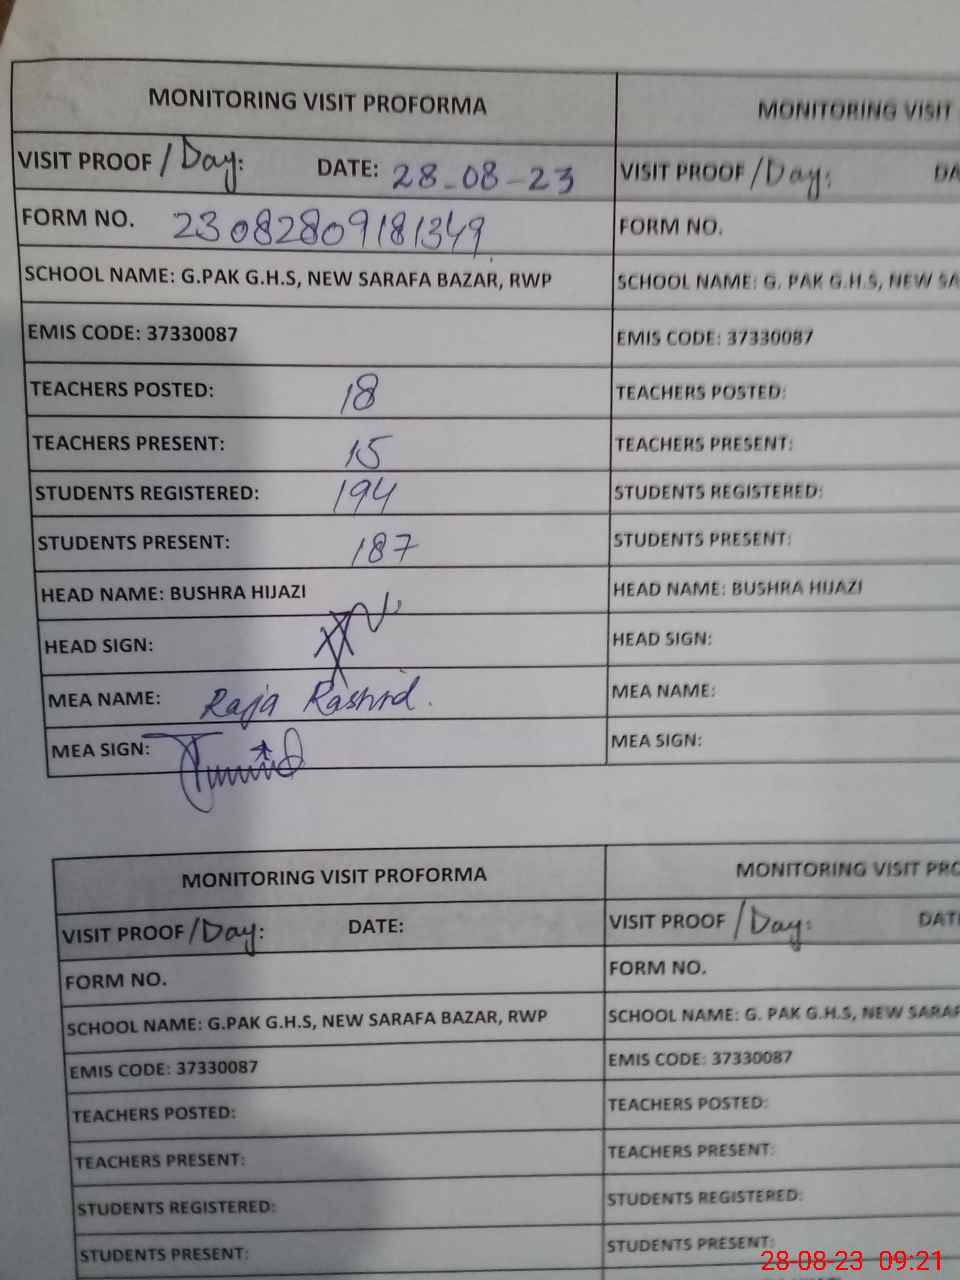 MONITORING VISIT PROFORMA
VISIT PROOF /Day: DATE: 28-08-23
FORM NO. 23082809181349
SCHOOL NAME: G.PAK G.H.S, NEW SARAFA BAZAR, RWP
EMIS CODE: 37330087
TEACHERS POSTED: 18
TEACHERS PRESENT: 15
STUDENTS REGISTERED: 194
STUDENTS PRESENT: 187
HEAD NAME: BUSHRA HIJAZI
HEAD SIGN:
MEA NAME: Raja Rashid.
MEA SIGN:
MONITORING VISIT
VISIT PROOF /Day: DA
FORM NO.
SCHOOL NAME: G. PAK G.H.S, NEW SA
EMIS CODE: 37330087
TEACHERS POSTED:
TEACHERS PRESENT:
STUDENTS REGISTERED:
STUDENTS PRESENT:
HEAD NAME: BUSHRA HIJAZI
HEAD SIGN:
MEA NAME:
MEA SIGN:
MONITORING VISIT PROFORMA
VISIT PROOF /Day: DATE:
FORM NO.
SCHOOL NAME: G.PAK G.H.S, NEW SARAFA BAZAR, RWP
EMIS CODE: 37330087
TEACHERS POSTED:
TEACHERS PRESENT:
STUDENTS REGISTERED:
STUDENTS PRESENT:
MONITORING VISIT PRO
VISIT PROOF /Day: DATE
FORM NO.
SCHOOL NAME: G. PAK G.H.S, NEW SARAF
EMIS CODE: 37330087
TEACHERS POSTED:
TEACHERS PRESENT:
STUDENTS REGISTERED:
STUDENTS PRESENT:
28-08-23 09:21